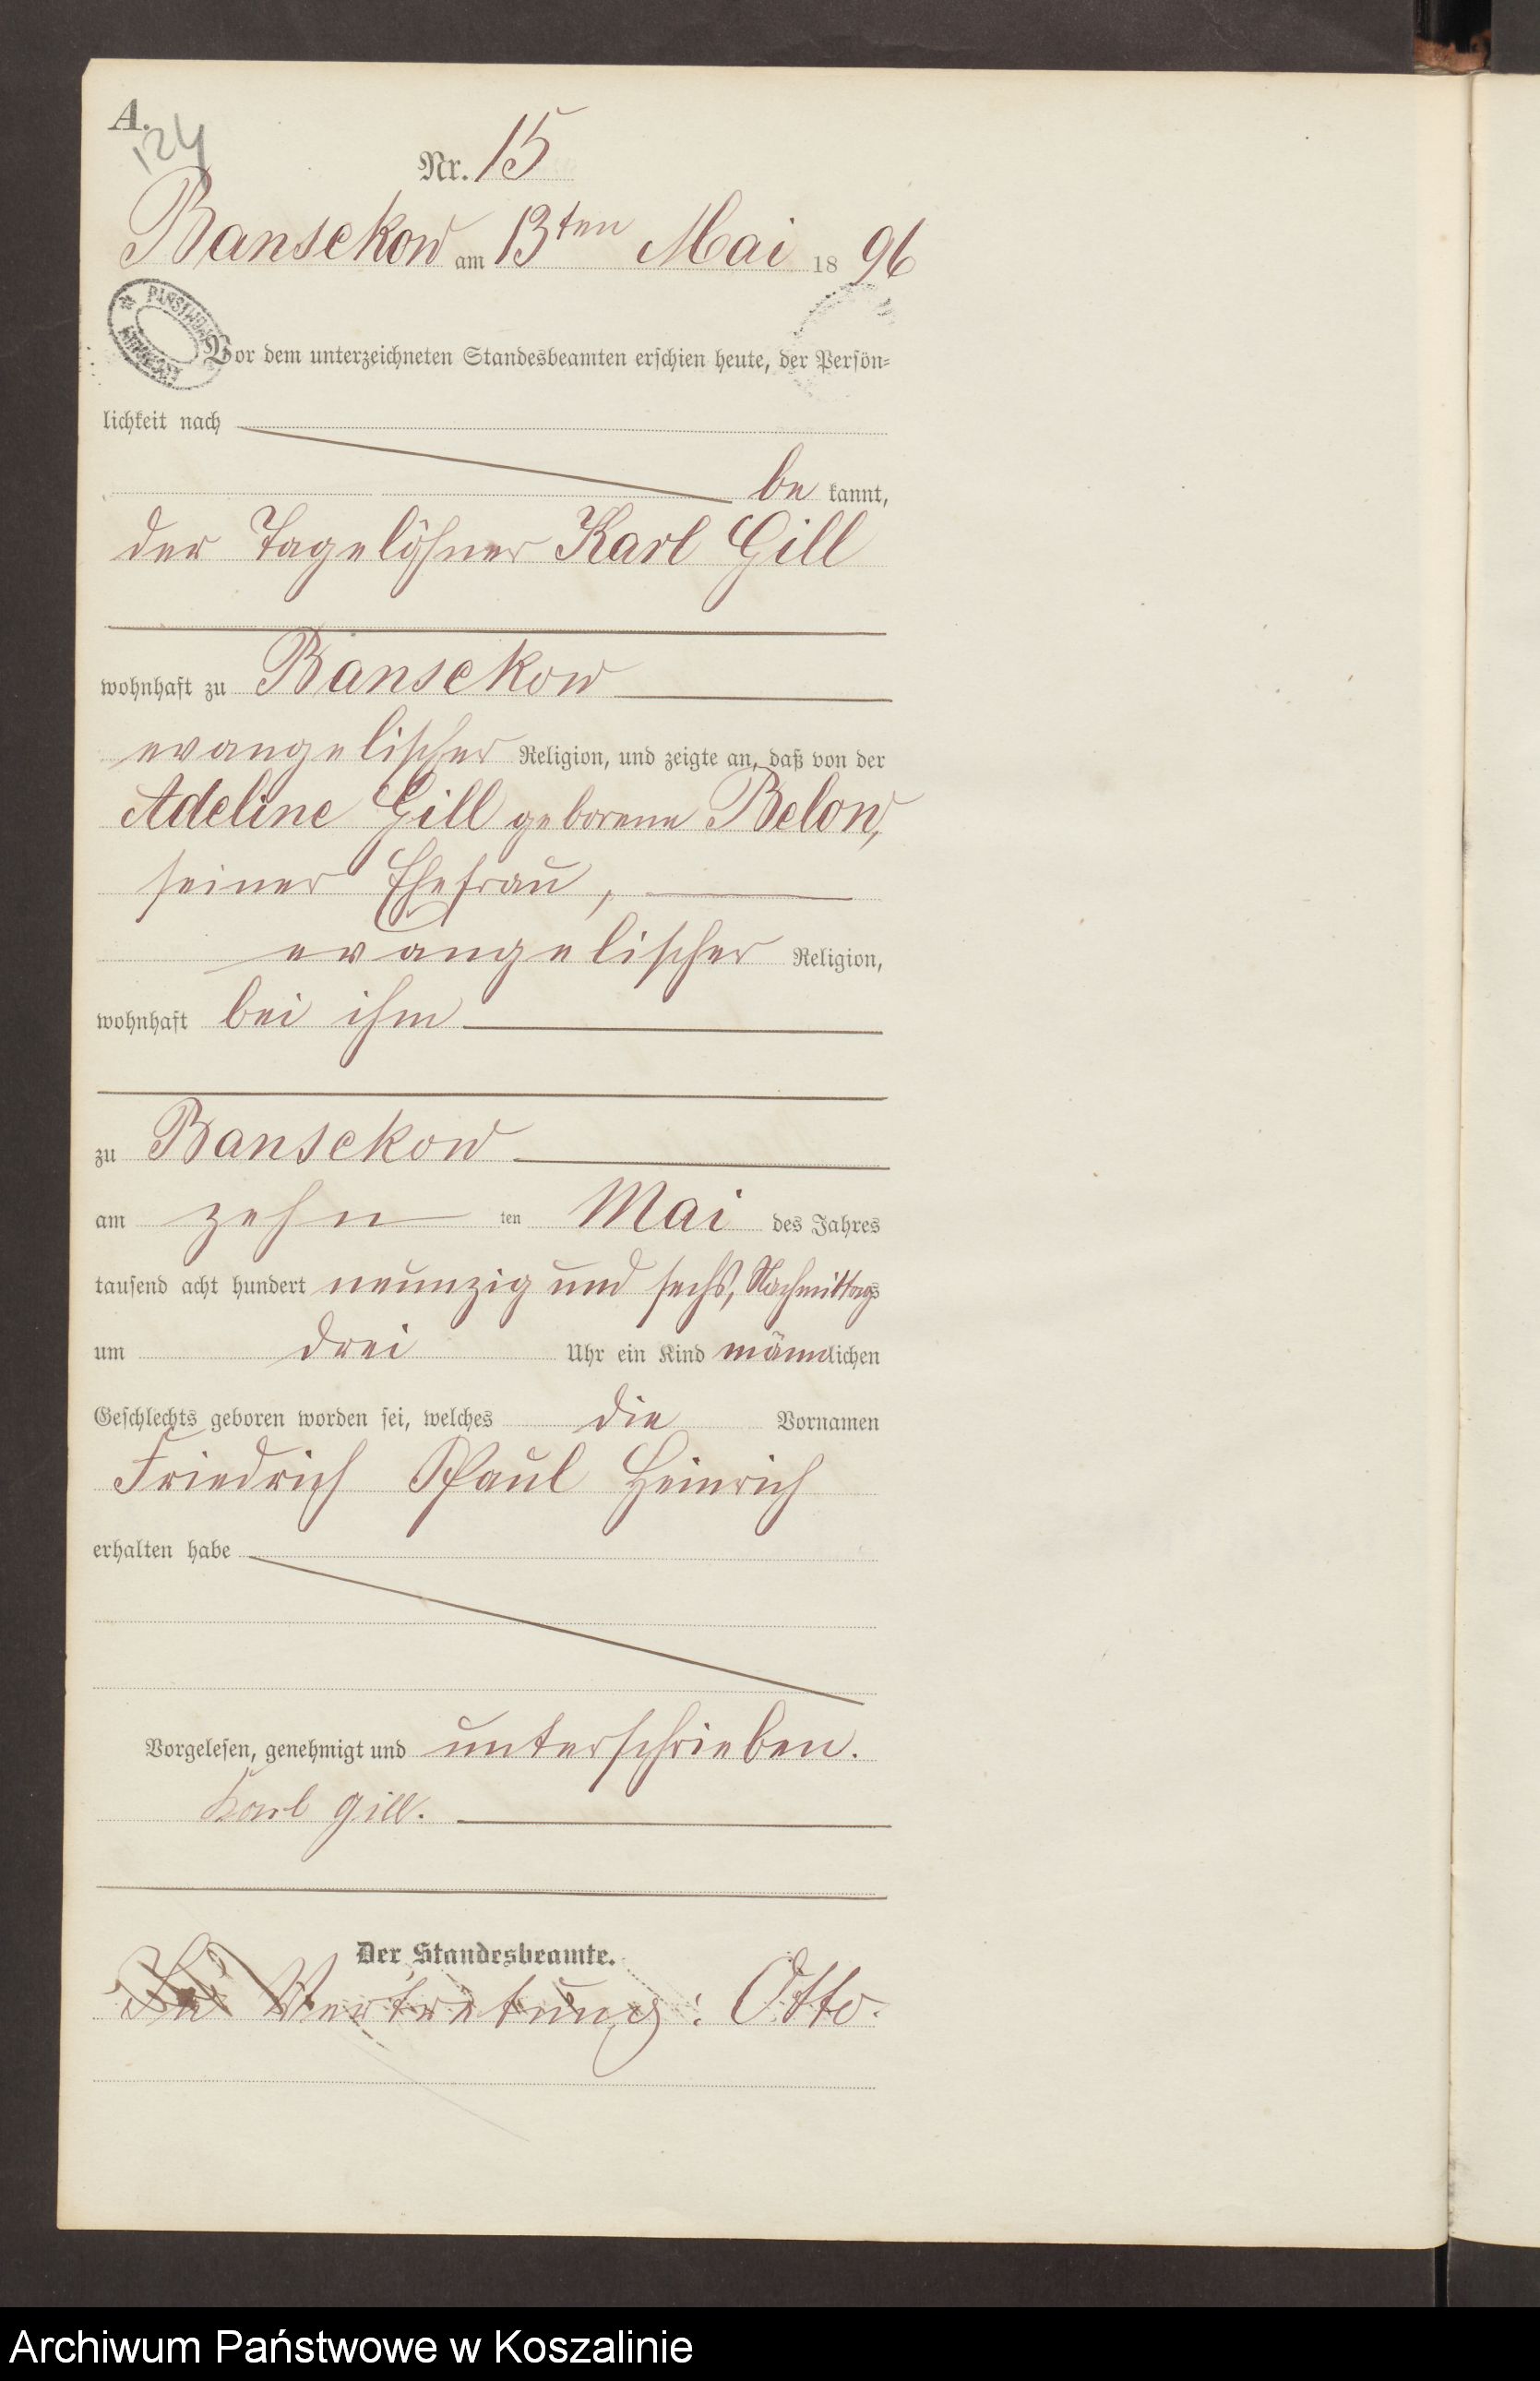 A.
124
Nr. 15
Bansekow am 13ten Mai 1896
Vor dem unterzeichneten Standesbeamten erschien heute, der Persön=
lichkeit nach
be kannt,
der Tagelöhner Karl Gill
wohnhaft zu Bansekow
evangelischer Religion, und zeigte an, daß von der
Adeline Gill geborene Below,
seiner Ehefrau,
evangelischer Religion,
wohnhaft bei ihm
zu Bansekow
am zehn ten Mai des Jahres
tausend acht hundert neunzig und sechs, Nachmittags
um drei Uhr ein Kind männlichen
Geschlechts geboren worden sei, welches die Vornamen
Friedrich Paul Heinrich
erhalten habe
Vorgelesen, genehmigt und unterschrieben.
Karl Gill.
Der Standesbeamte.
In Vertretung: Otto.
Archiwum Państwowe w Koszalinie